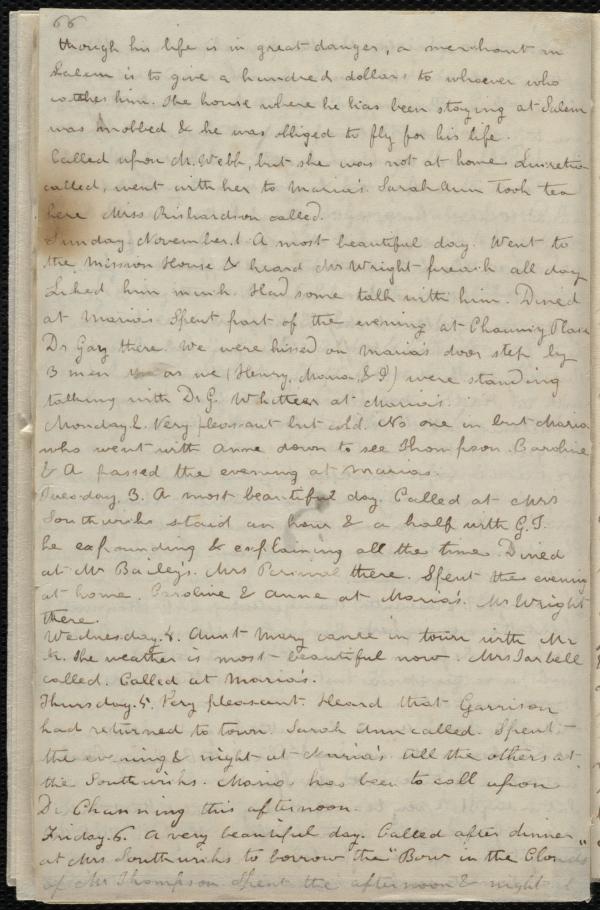 66
though his life is in great danger, a merchant in
Salem is to give a hundred dollars to whoever who
catches him. The house where he has been staying at Salem
was mobbed & he was obliged to fly for his life.
Called upon M. Webb, but she was not at home. Lucretia
called, went with her to Maria's. Sarah Ann took tea
here Miss Richardson called.
Sunday. November. 1 A most beautiful day. Went to
the Mission House & heard Mr Wright preach all day
Liked him much. Had some talk with him. Dined
at Maria's Spent part of the evening at Chauncy Place
Dr Gay there. We were hissed on Maria's door step by
3 men as we (Henry, Maria, & I) were standing
talking with Dr G. Whittier at Maria's.
Monday 2. Very pleasant but cold. No one in but Maria
who went with Anne down to see Thompson. Caroline
& A passed the evening at Marias.
Tuesday. 3. A most beautiful day. Called at Mrs
Southwicks staid an hour & a half with G.T.
he expounding & explaining all the time. Dined
at Mr Bailey's. Mrs Percival there. Spent the evening
at home. Caroline & Anne at Maria's. Mr Wright
there.
Wednesday. 4. Aunt Mary came in town with Mr
K. The weather is most beautiful now. Mrs Tarbell
called. Called at Maria's.
Thursday. 5. Very pleasant. Heard that Garrison
had returned to town. Sarah Ann called. Spent
the evening & night at Maria's all the others at
the Southwicks. Maria has been to call upon
Dr Channing this afternoon.
Friday. 6. A very beautiful day. Called after dinner
at Mrs Southwicks to borrow the "Bow in the Clouds"
of Mr Thompson Spent the afternoon & night